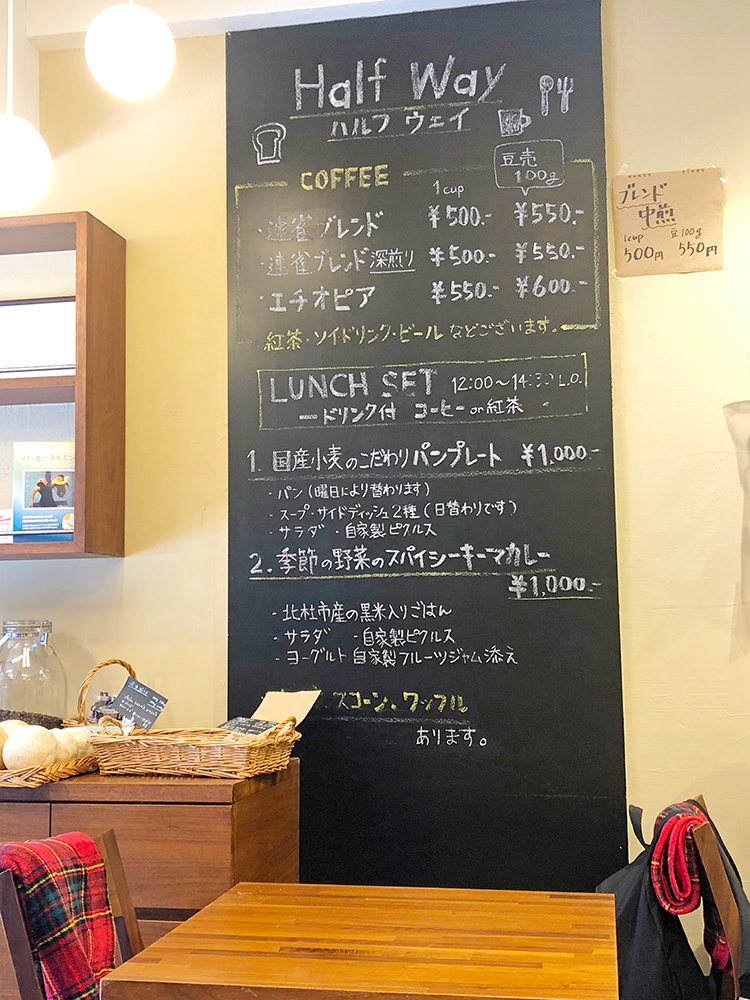 Half Way
ハルフ ウェイ
COFFEE
1cup
豆売
100g
・連雀ブレンド ¥500.- ¥550.-
・連雀ブレンド 深煎り ¥500.- ¥550.-
・エチオピア ¥550.- ¥600.-
紅茶・ソイドリンク・ビール などございます。
LUNCH SET 12:00〜14:30 L.O.
ードリンク付 コーヒー or 紅茶
1. 国産小麦のこだわりパンプレート ¥1,000.-
・パン(曜日により替わります)
・スープ・サイドディッシュ2種(日替わりです)
・サラダ ・自家製ピクルス
2. 季節の野菜のスパイシーキーマカレー
¥1,000.-
・北杜市産の黒米入りごはん
・サラダ ・自家製ピクルス
・ヨーグルト 自家製フルーツジャム添え
・スコーン・ワッフル
あります。
ブレンド
中煎
1cup 豆100g
500円 550円